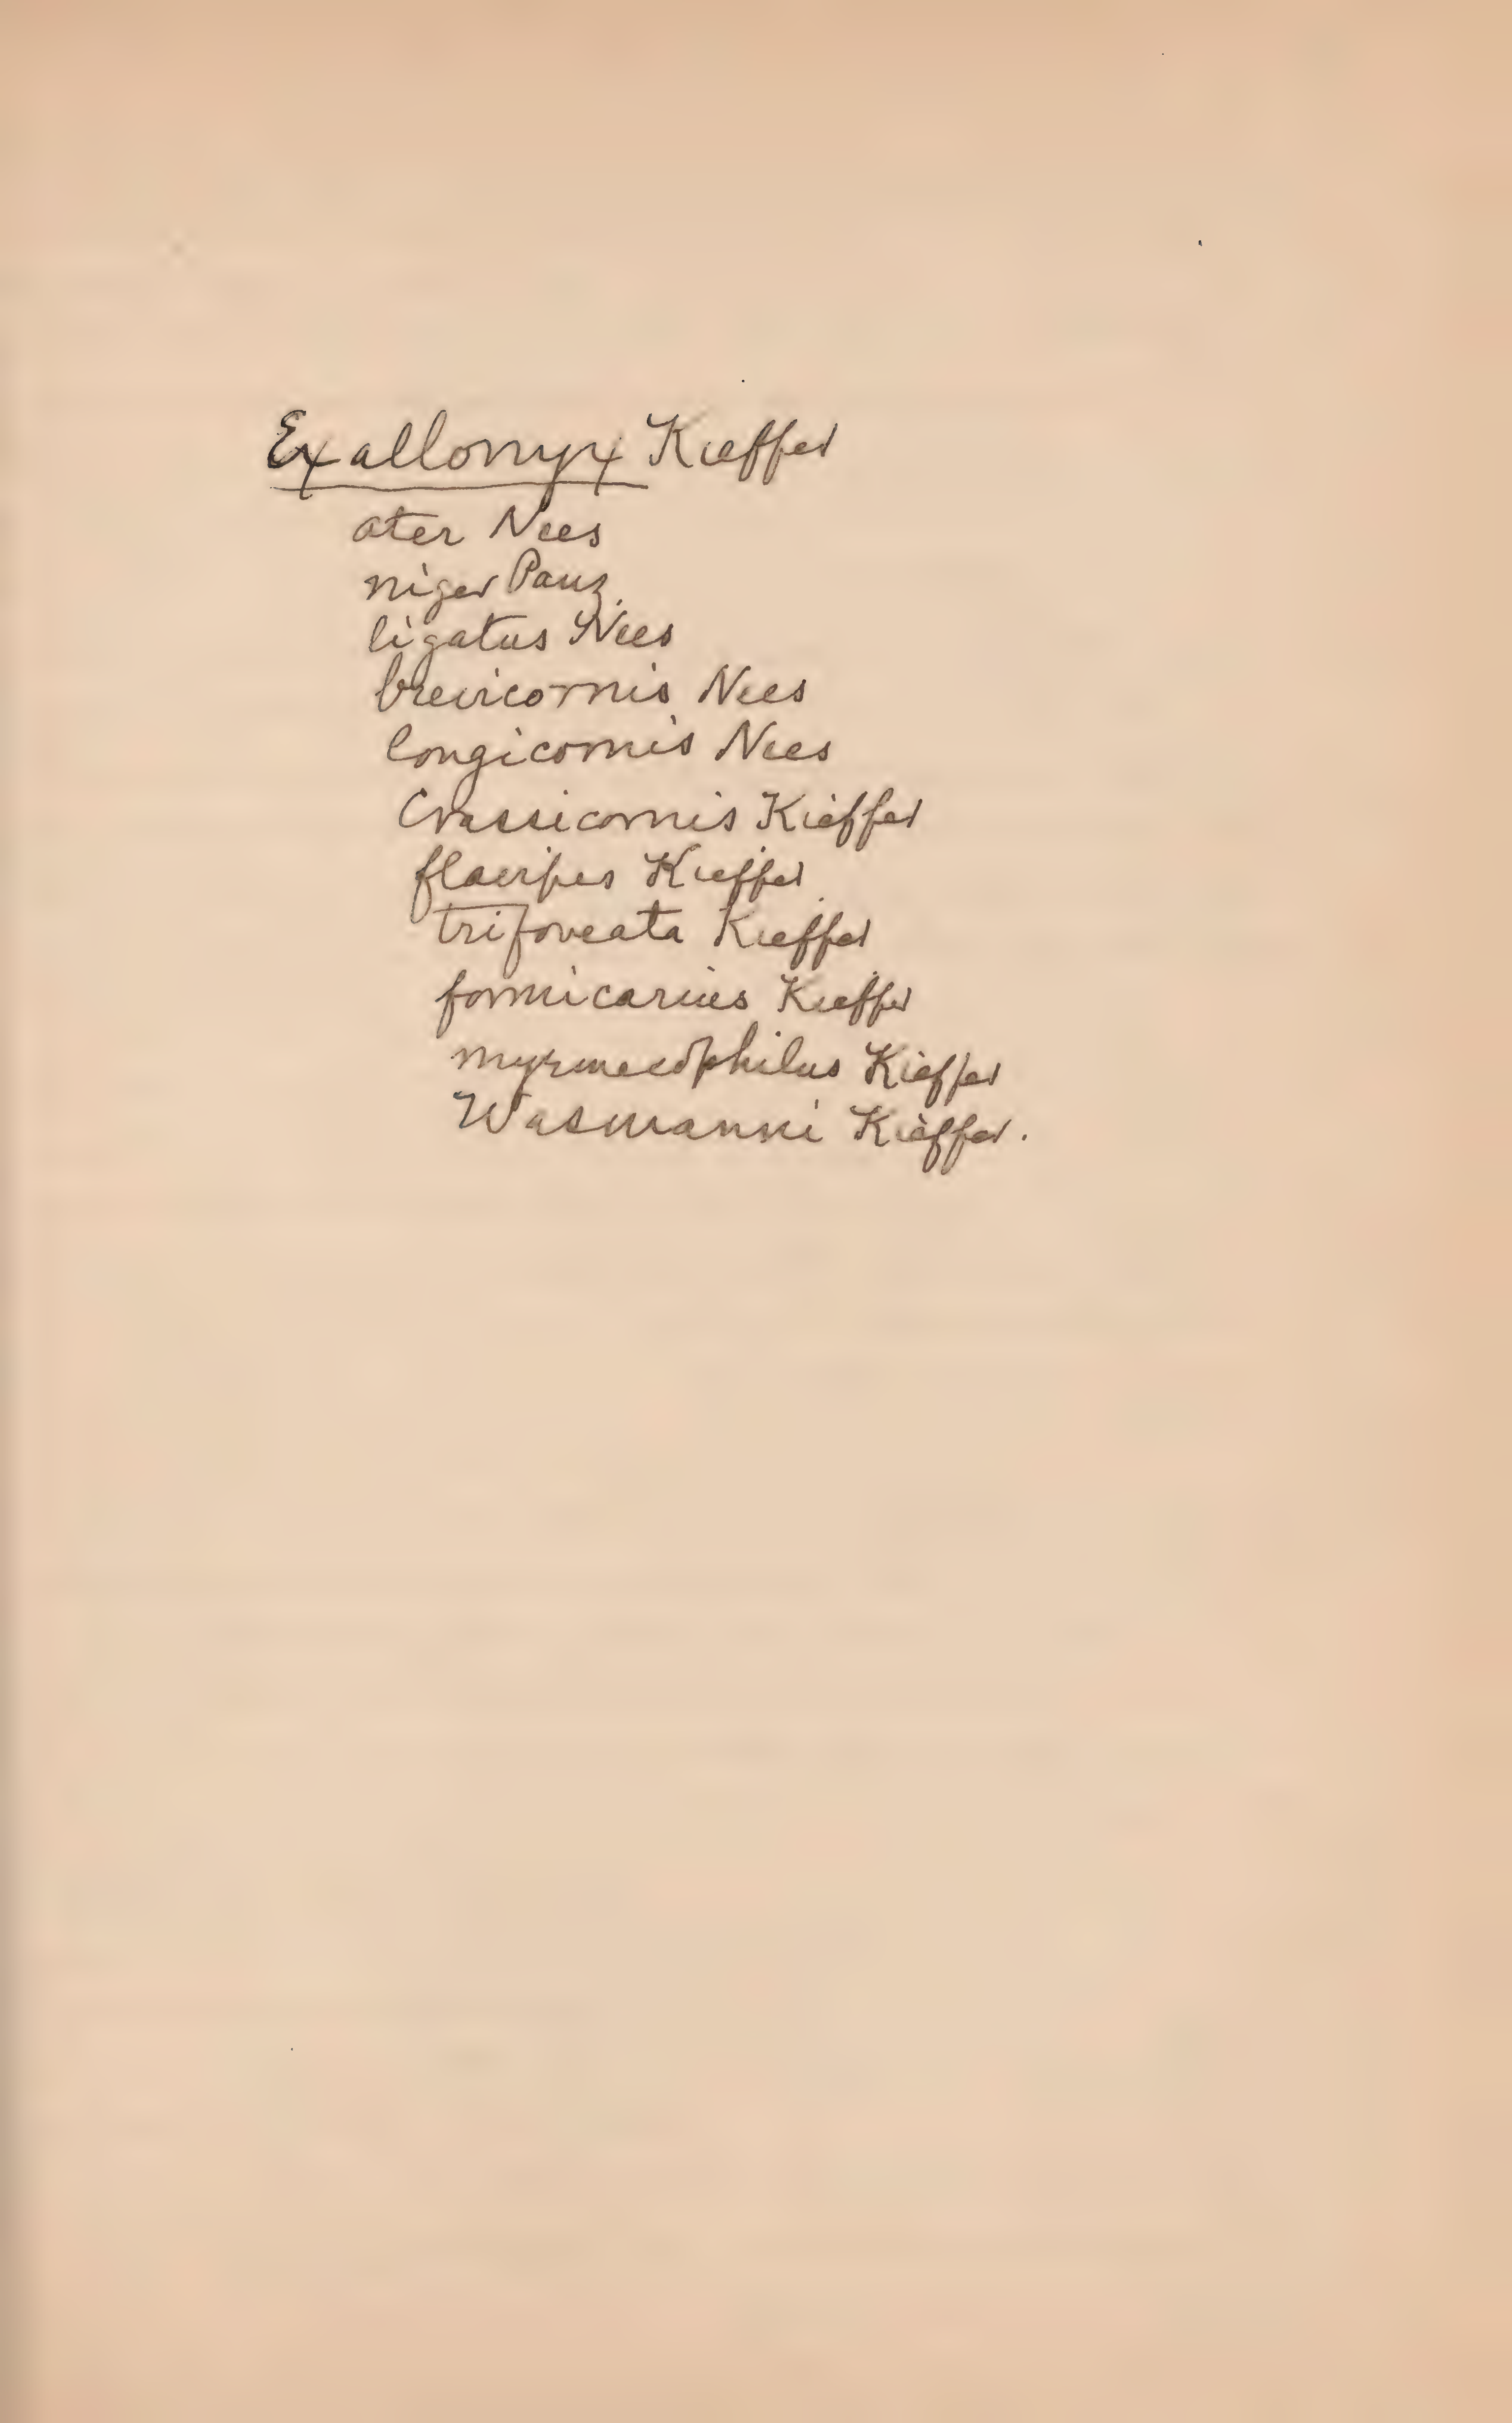 Exallonyx Kieffer
ater Nees
niger Panz.
ligatus Nees
brevicornis Nees
longicornis Nees
Crassicornis Kieffer
flavipes Kieffer
trifoveata Kieffer
formicarius Kieffer
myrmecophilus Kieffer
Wasmanni Kieffer.